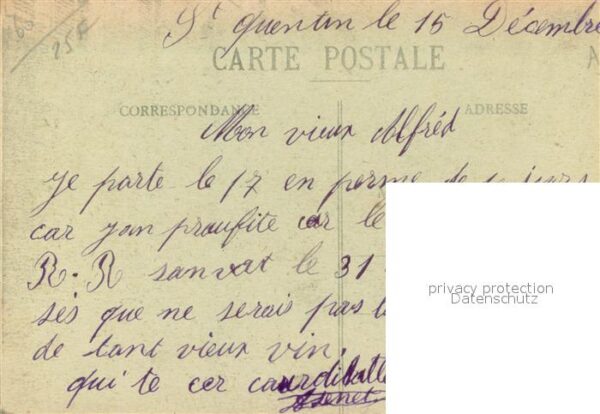 66
25F
St quentin le 15 Décembre
CARTE POSTALE
CORRESPONDANCE
ADRESSE
Mon vieux Alfréd
je parte le 17 en perme de jours
car jan proufite car le
R. R sanvat le 31
sés que ne serais pas
de tant vieux vin,
qui te cer
privacy protection
Datenschutz